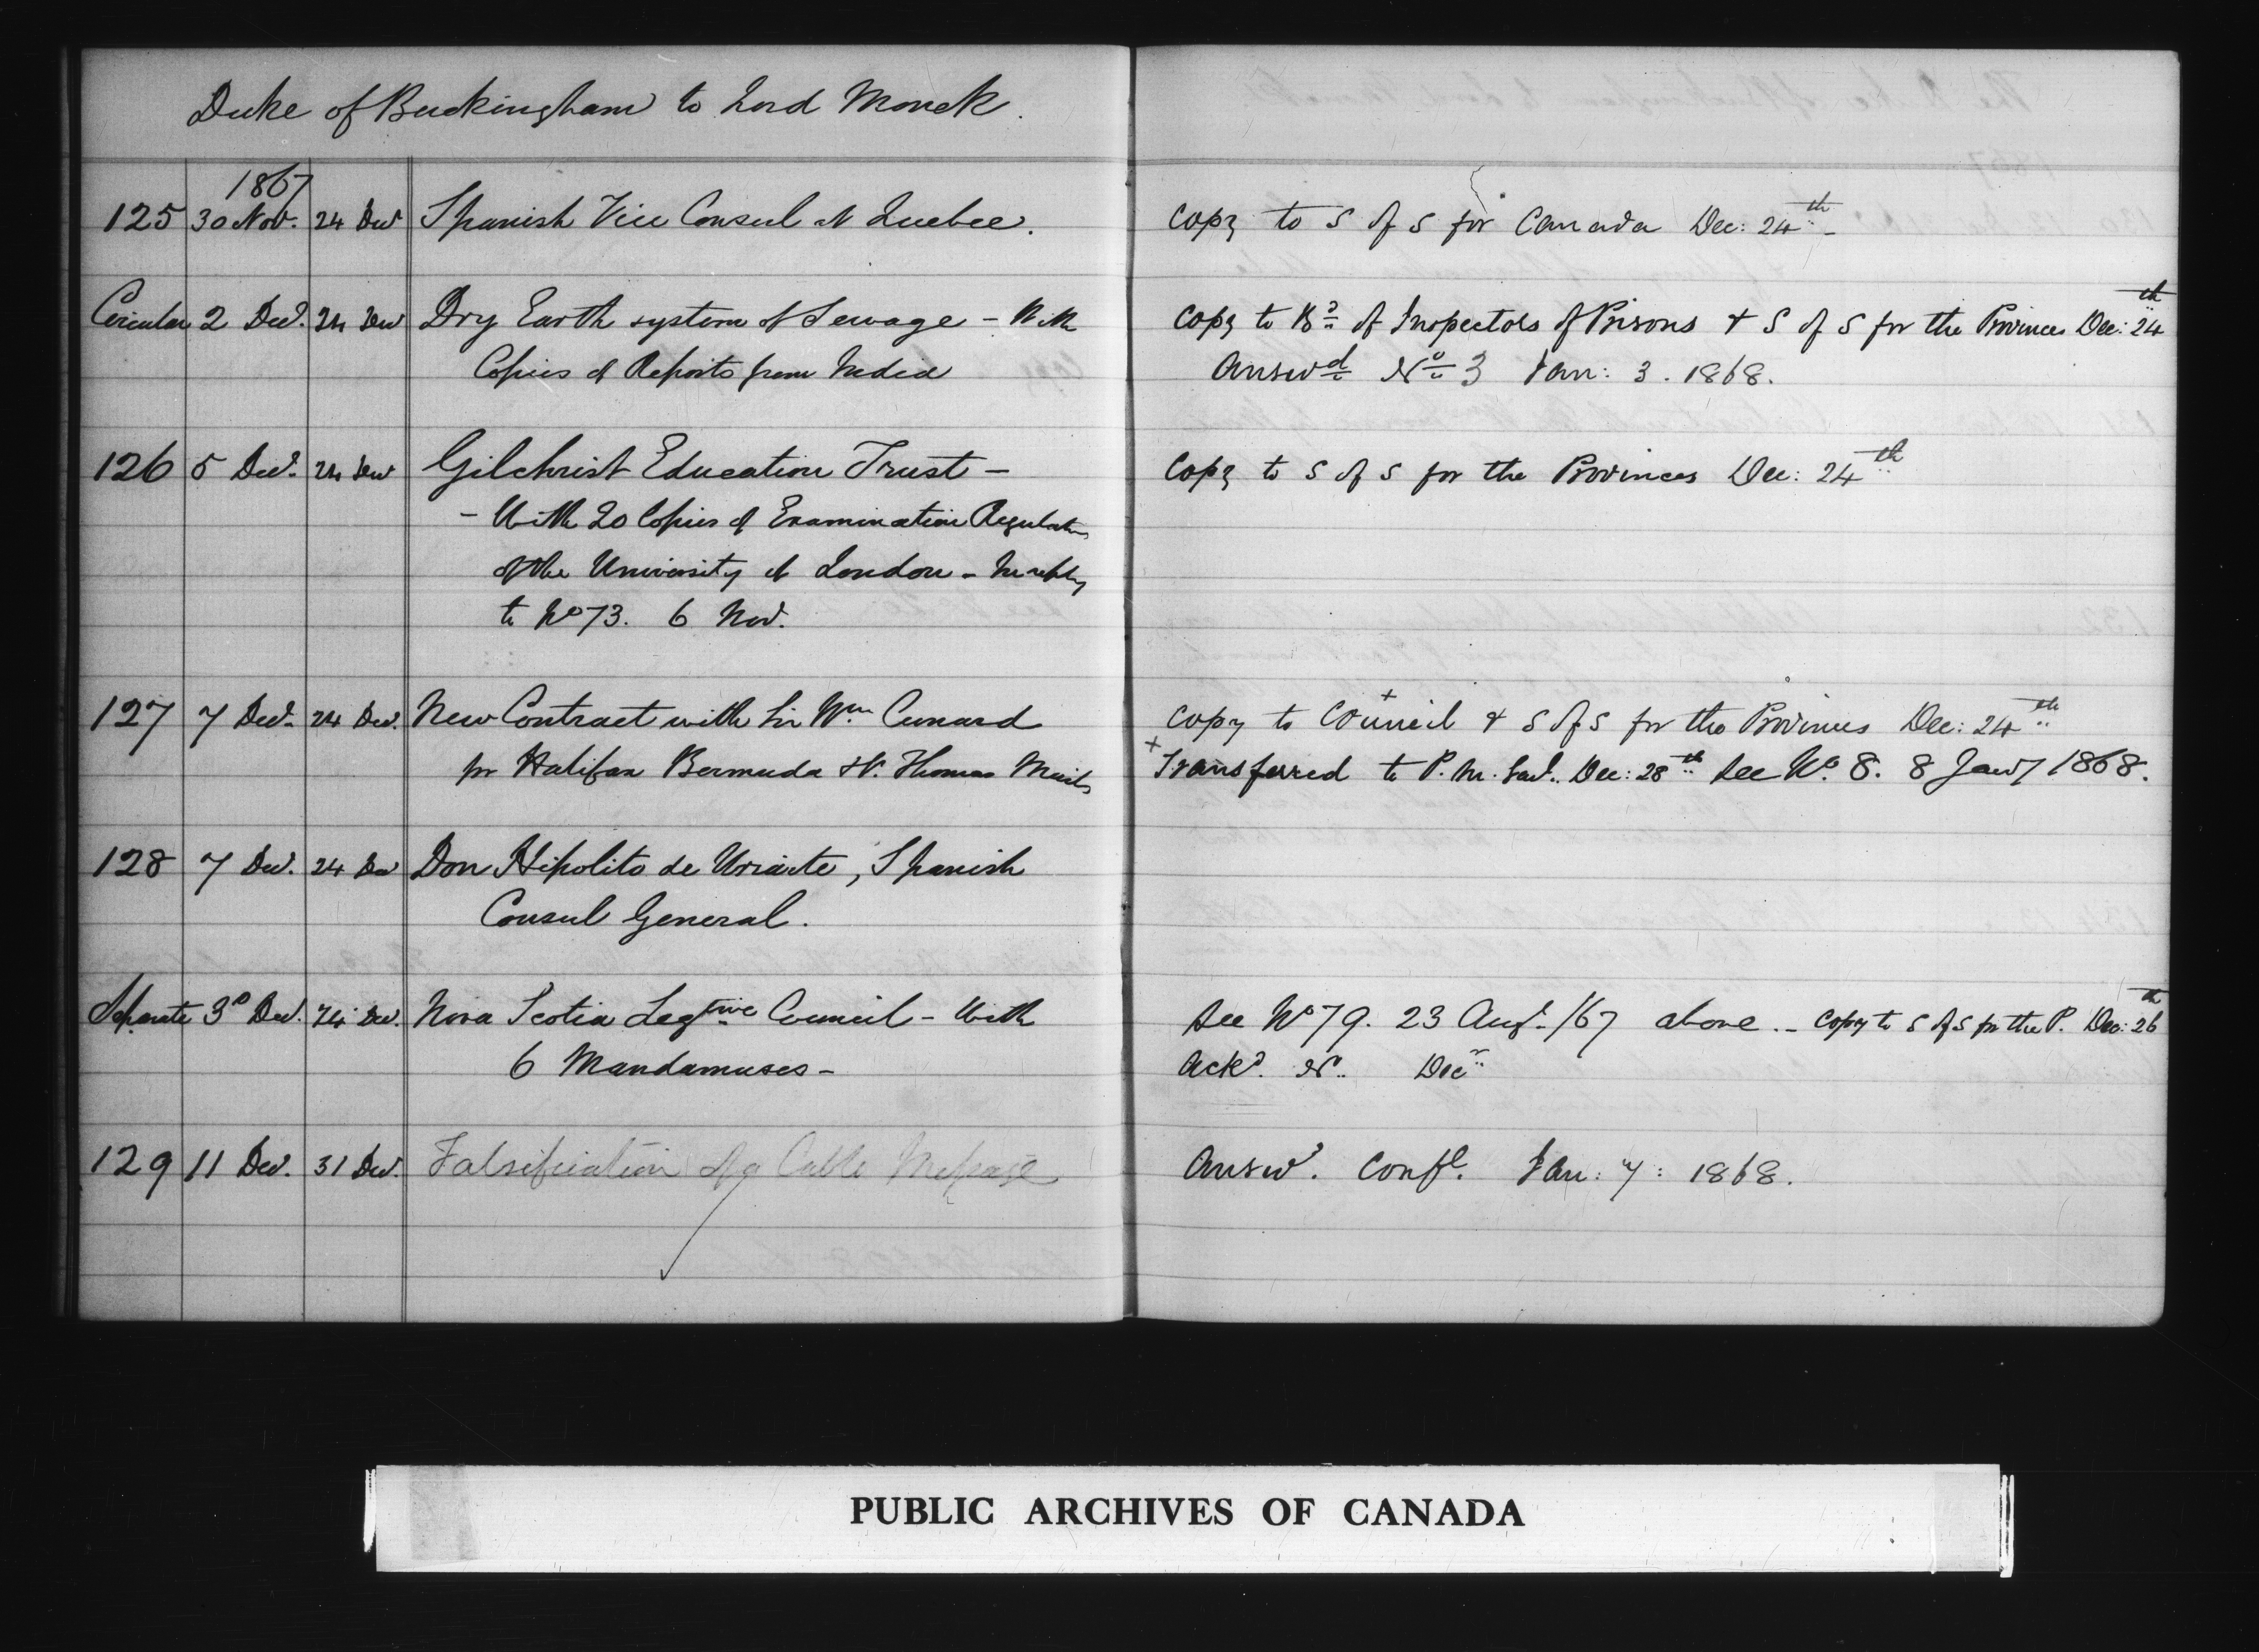 Duke of Buckingham to Lord Monck.
1867
125 30 Nov. 24 Dec Spanish Vice Consul at Quebec. Copy to S of S for Canada Dec: 24th
Circular 2 Decr. 24 Dec Dry Earth system of Sewage - With Copy to Bd of Inspectors of Prisons & S of S for the Provinces Dec: 24th
Copies of Reports from India Answd No 3 Jan: 3. 1868.
126 5 Decr. 24 Dec Gilchrist Education Trust - Copy to S of S for the Provinces Dec: 24th
- With 20 Copies of Examination Regulations
of the University of London - In reply
to No 73. 6 Nov.
127 7 Decr. 24 Dec. New Contract with Sir Wm Cunard Copy to Council + & S of S for the Provinces Dec: 24th
for Halifax Bermuda & St. Thomas Mails + Transferred to P. M. Genl. Dec: 28th See No. 8. 8 Jany 1868.
128 7 Dec. 24 Dec Don Hipolito de Uriarte, Spanish
Consul General.
Separate 3d Dec. 24 Dec. Nova Scotia Legtive Council - With See No 79. 23 Augt /67 above. - Copy to S of S for the P. Dec: 26th
6 Mandamuses - Ackd. No. Decr
129 11 Dec. 31 Dec. Falsification of a Cable Message Answd. Confl. Jan: 7: 1868.
PUBLIC ARCHIVES OF CANADA